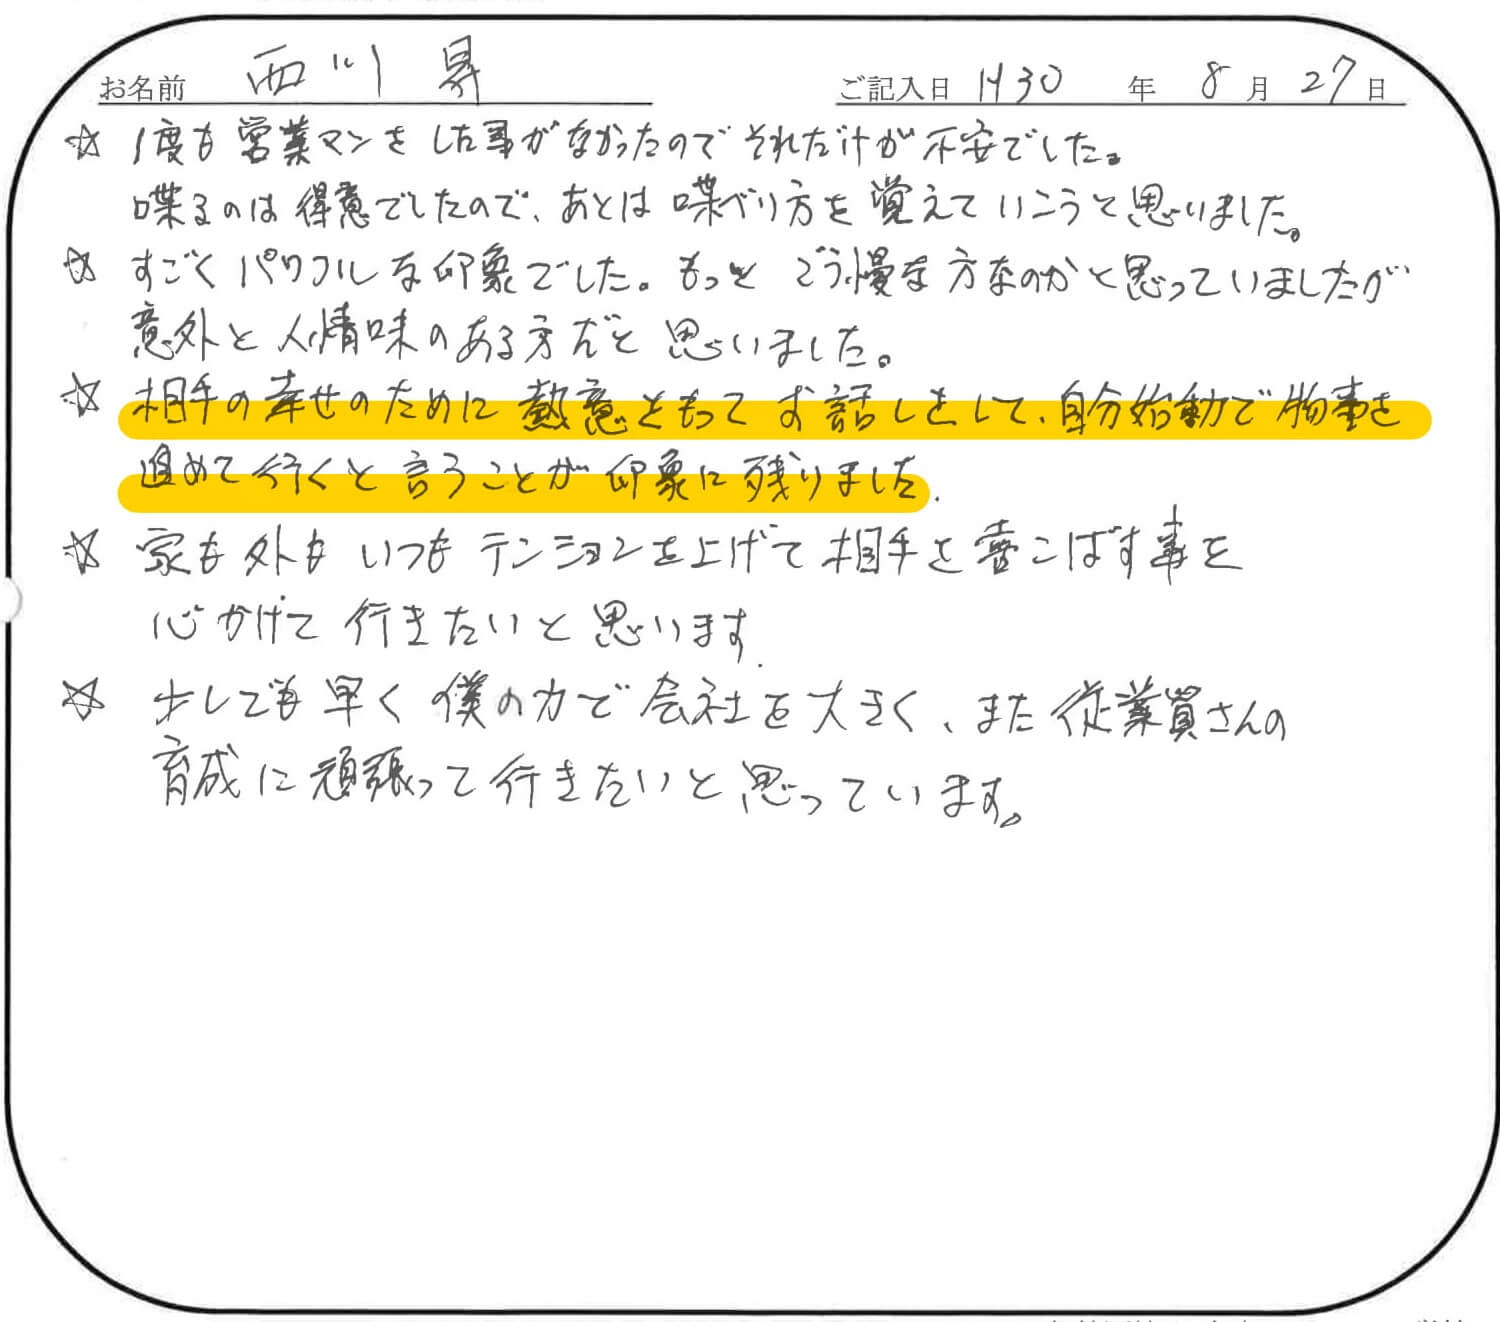 お名前 西川 昇 ご記入日 H30 年 8 月 27 日
☆ 1度も営業マンをした事がなかったのでそれだけが不安でした。
喋るのは得意でしたので、あとは喋べり方を覚えていこうと思いました。
☆ すごくパワフルな印象でした。もっとごう慢な方なのかと思っていましたが
意外と人情味のある方だと思いました。
☆ 相手の幸せのために熱意ともってお話しをして、自分始動で物事を
進めて行くと言うことが印象に残りました.
☆ 家も外もいつもテンションを上げて相手を喜こばす事を
心がけて行きたいと思います.
☆ 少しでも早く僕の力で会社を大きく、また従業員さんの
育成に頑張って行きたいと思っています。